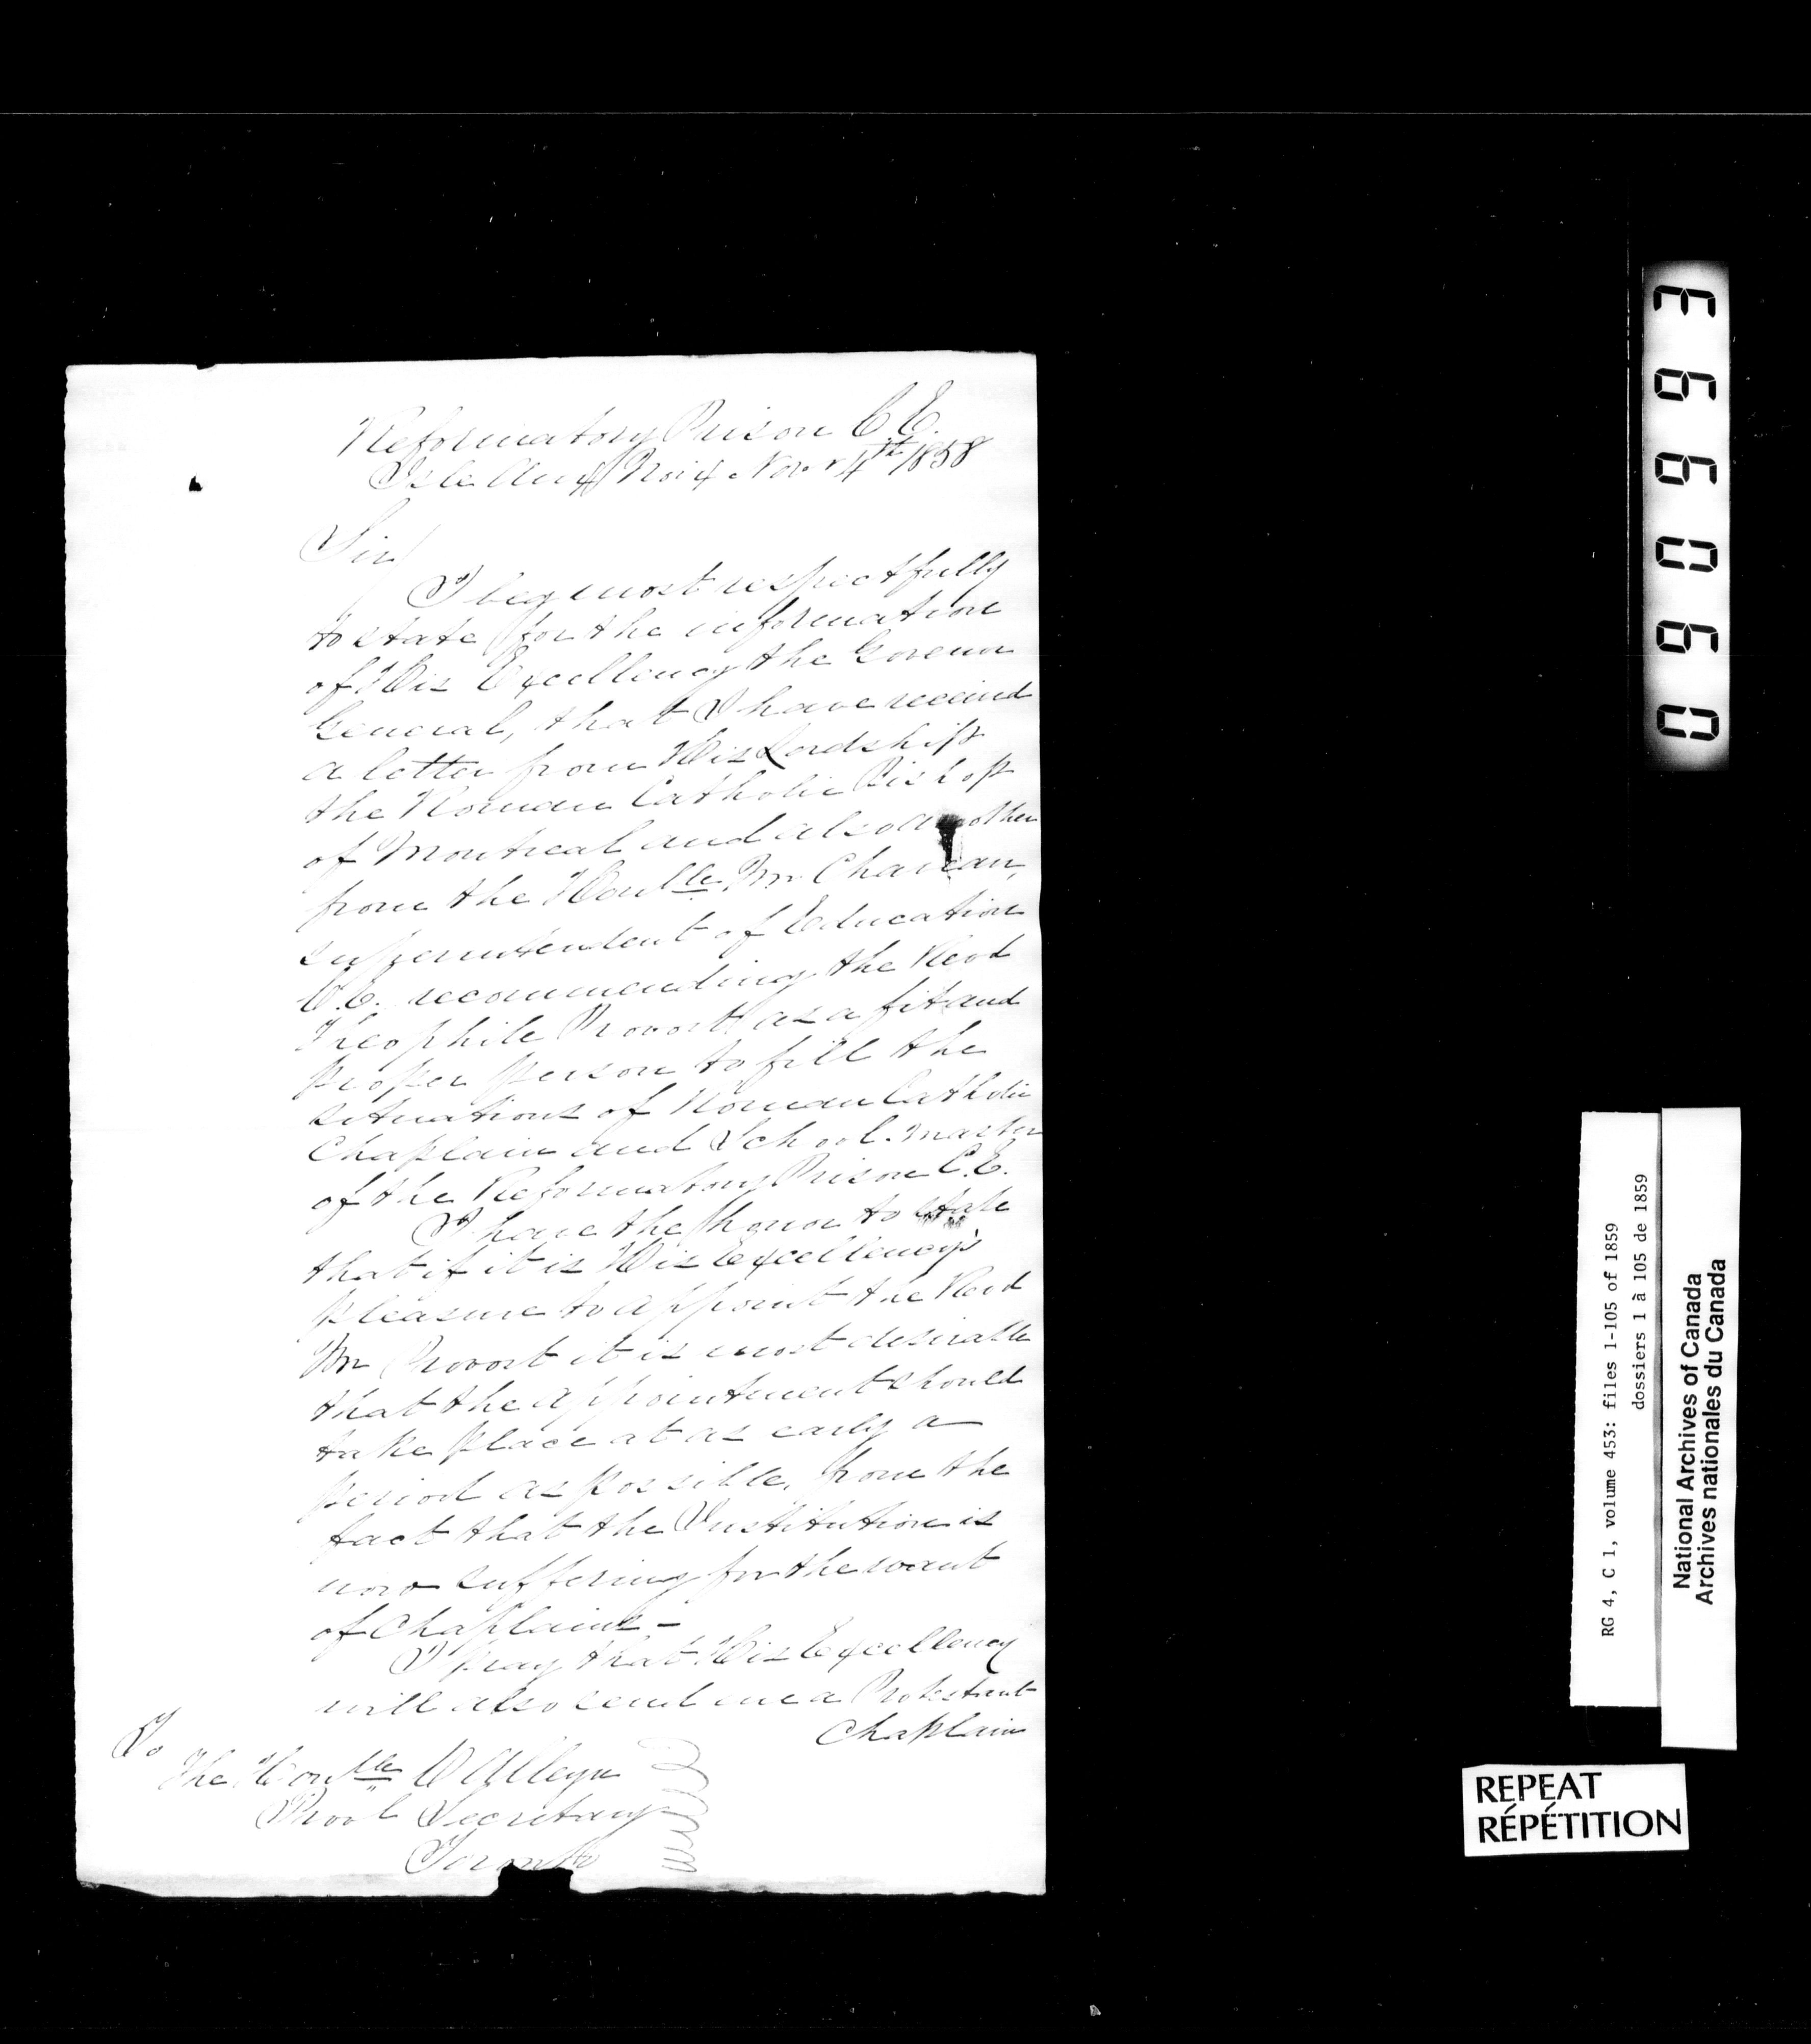 Reformatory Prison C.E.
Isle Aux Noix Novr 4th 1858
Sir/
I beg most respectfully
to state for the information
of His Excellency the Govenor
General, that I have received
a letter from His Lordship
the Roman Catholic Bishop
of Montreal and also another
from the Honble Mr Chaveau,
superintendent of Education
C.E. recommending the Revd
Theophile Provost as a fit and
proper person to fill the
situations of Roman Catholic
Chaplain and School-master
of the Reformatory Prison C.E.
I have the honor to state
that if it is His Excellency's
pleasure to appoint the Revd
Mr Provost it is most desirable
that the appointment should
take place at as early a
period as possible, from the
fact that the Institution is
now suffering for the want
of Chaplains -
I pray that His Excellency
will also send me a Protestant
Chaplain
To
The Honble C Alleyn
Provl Secretary
Toronto
0606663
RG 4, C 1, volume 453: files 1-105 of 1859
dossiers 1 à 105 de 1859
National Archives of Canada
Archives nationales du Canada
REPEAT
RÉPÉTITION